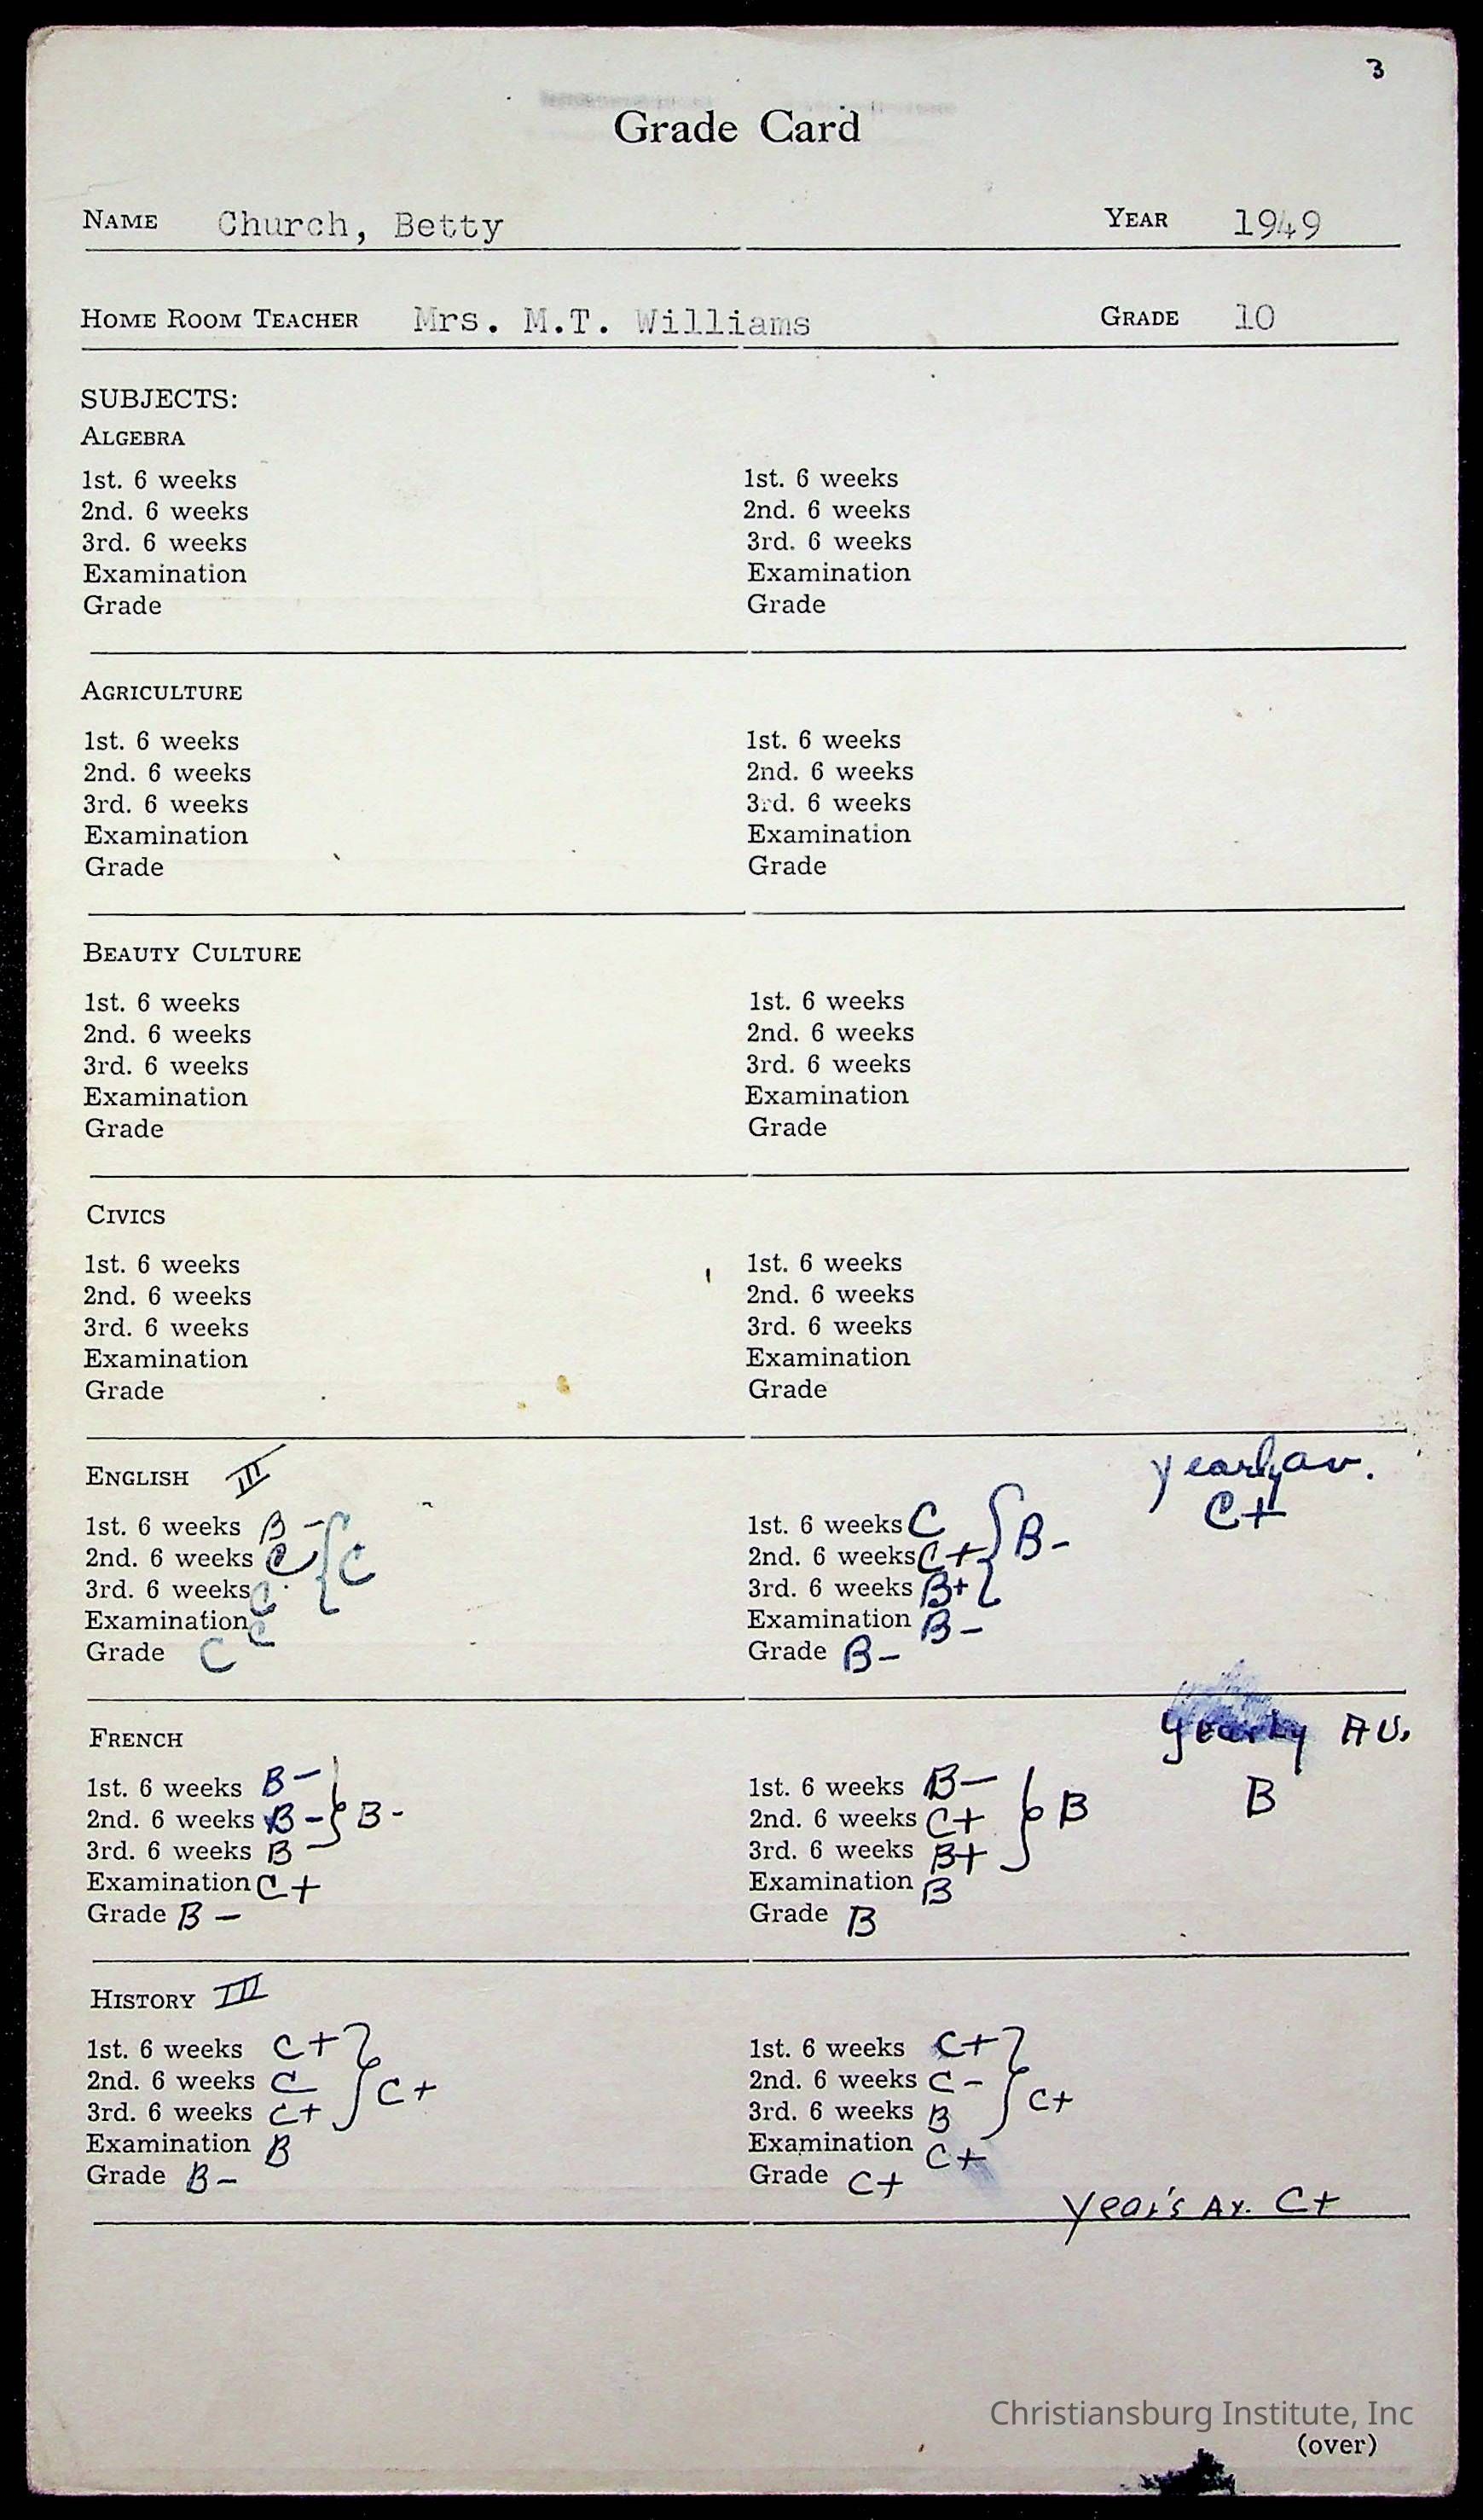 3
Grade Card
NAME Church, Betty YEAR 1949
HOME ROOM TEACHER Mrs. M.T. Williams GRADE 10
SUBJECTS:
ALGEBRA
1st. 6 weeks 1st. 6 weeks
2nd. 6 weeks 2nd. 6 weeks
3rd. 6 weeks 3rd. 6 weeks
Examination Examination
Grade Grade
AGRICULTURE
1st. 6 weeks 1st. 6 weeks
2nd. 6 weeks 2nd. 6 weeks
3rd. 6 weeks 3rd. 6 weeks
Examination Examination
Grade Grade
BEAUTY CULTURE
1st. 6 weeks 1st. 6 weeks
2nd. 6 weeks 2nd. 6 weeks
3rd. 6 weeks 3rd. 6 weeks
Examination Examination
Grade Grade
CIVICS
1st. 6 weeks 1st. 6 weeks
2nd. 6 weeks 2nd. 6 weeks
3rd. 6 weeks 3rd. 6 weeks
Examination Examination
Grade Grade
ENGLISH III yearly av.
1st. 6 weeks B- 1st. 6 weeks C C+
2nd. 6 weeks C C 2nd. 6 weeks C+ B-
3rd. 6 weeks C 3rd. 6 weeks B+
Examination C Examination B-
Grade C Grade B-
FRENCH Yearly AV.
1st. 6 weeks B- 1st. 6 weeks B- B
2nd. 6 weeks B- B- 2nd. 6 weeks C+ B
3rd. 6 weeks B 3rd. 6 weeks B+
Examination C+ Examination B
Grade B- Grade B
HISTORY III
1st. 6 weeks C+ 1st. 6 weeks C+
2nd. 6 weeks C C+ 2nd. 6 weeks C- C+
3rd. 6 weeks C+ 3rd. 6 weeks B
Examination B Examination C+
Grade B- Grade C+
Year's Av. C+
Christiansburg Institute, Inc
(over)